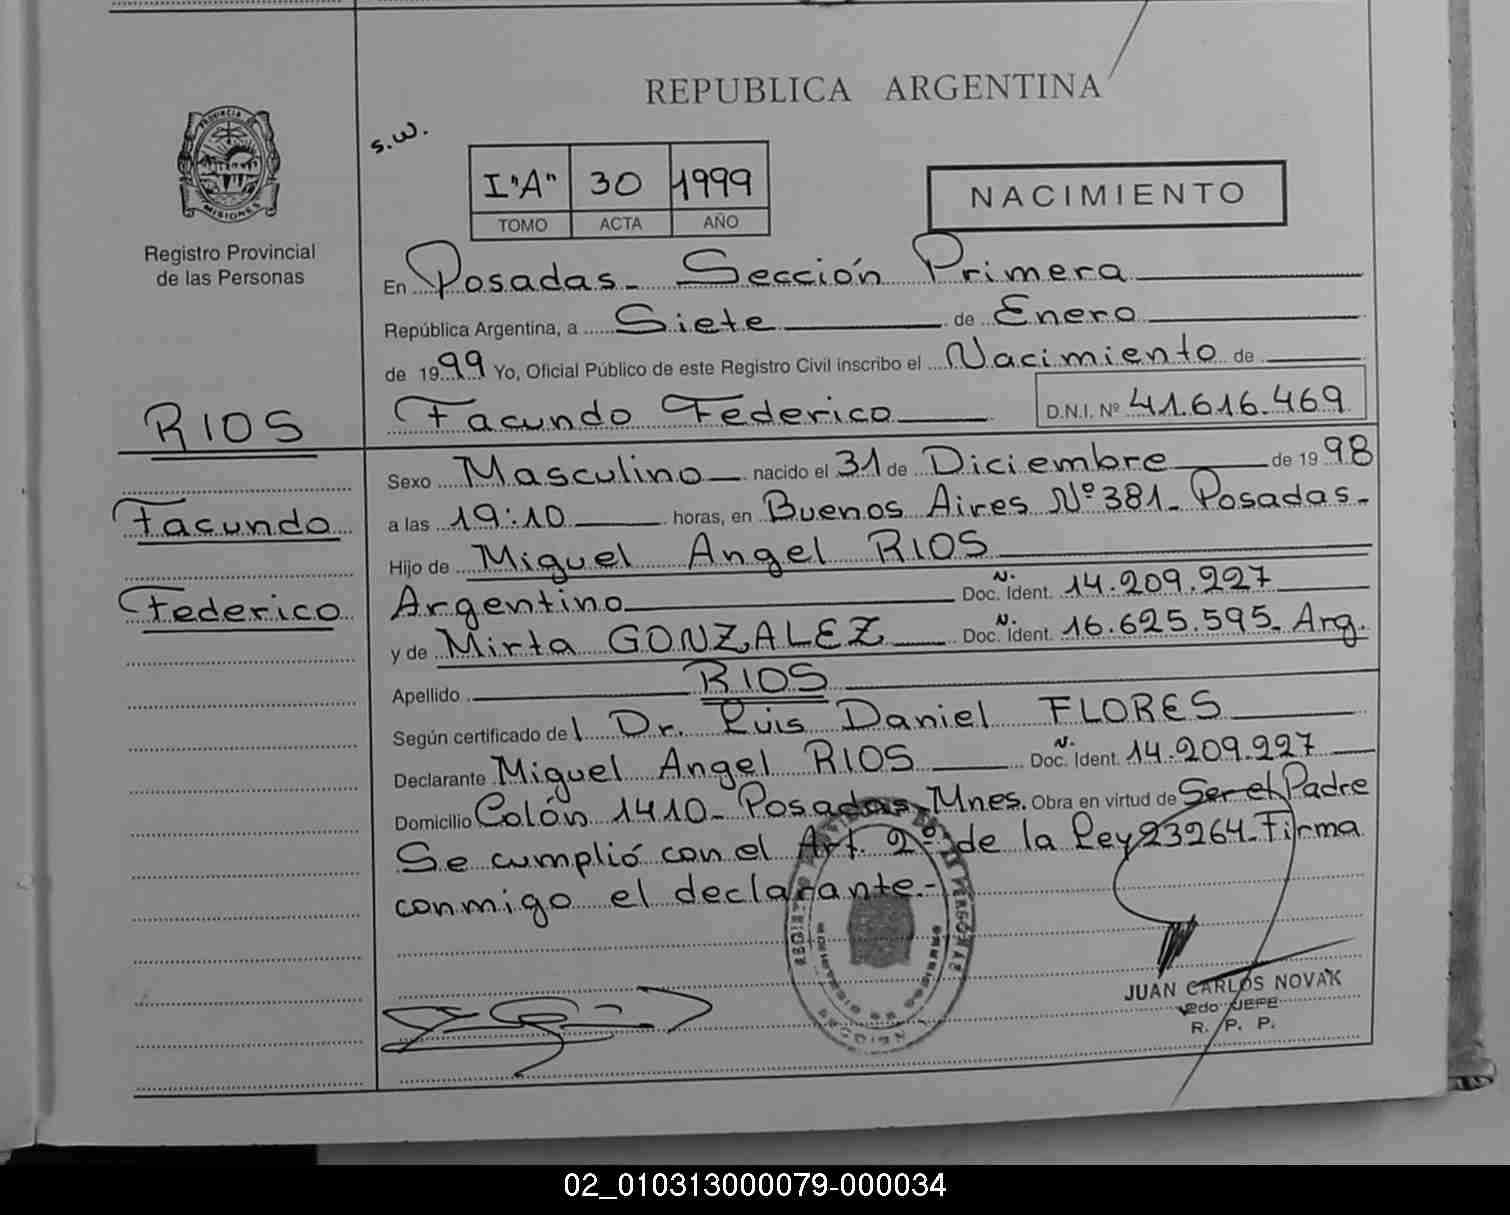 REPUBLICA ARGENTINA
PROVINCIA DE
MISIONES
Registro Provincial
de las Personas
s.w.
I"A" 30 1999
TOMO ACTA AÑO
NACIMIENTO
En Posadas - Sección Primera
República Argentina, a Siete de Enero
de 1999 Yo, Oficial Público de este Registro Civil inscribo el Nacimiento de
Facundo Federico D.N.I. Nº 41.616.469
RIOS
Facundo
Federico
Sexo Masculino nacido el 31 de Diciembre de 1998
a las 19:10 horas, en Buenos Aires Nº 381 - Posadas -
Hijo de Miguel Angel RIOS
Argentino Doc. N. Ident. 14.209.227
y de Mirta GONZALEZ Doc. N. Ident. 16.625.595 - Arg.
Apellido RIOS
Según certificado del Dr. Luis Daniel FLORES
Declarante Miguel Angel RIOS Doc. N. Ident. 14.209.227
Domicilio Colón 1410 - Posadas - Mnes. Obra en virtud de Ser el Padre
Se cumplió con el Art. 2º de la Ley 23264 - Firma
conmigo el declarante.-
JUAN CARLOS NOVAK
2do JEFE
R. P. P.
02_010313000079-000034